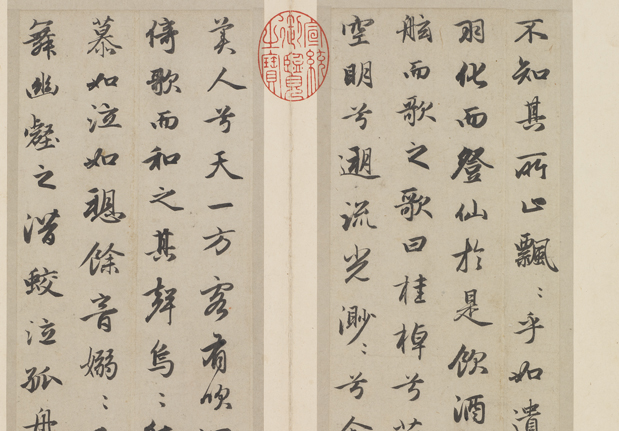 不知其所止飄〻乎如遺
羽化而登仙於是飲酒
舷而歌之歌曰桂棹兮
空明兮遡流光渺〻兮
宣統御覽之寶
美人兮天一方客有吹
倚歌而和之其聲烏〻
慕如泣如愬餘音嫋〻
舞幽壑之潛蛟泣孤舟